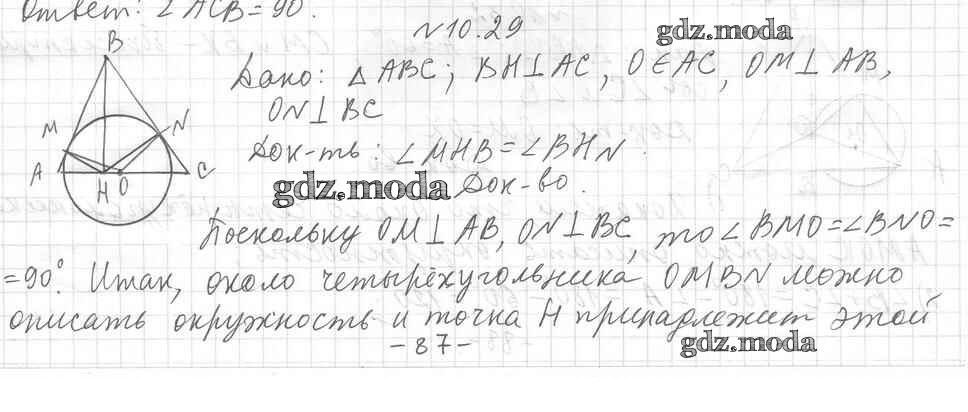 Ответ: ∠ACB = 90°.
№10.29
gdz.moda
Дано: △ABC; BH⊥AC, O∈AC, OM⊥AB,
ON⊥BC
Док-ть: ∠MHB=∠BHN.
gdz.moda Док-во.
Поскольку OM⊥AB, ON⊥BC, то ∠BMO=∠BNO=
=90°. Итак, около четырёхугольника OMBN можно
описать окружность и точка H принадлежит этой
-87-
gdz.moda
B
M N
A H O C